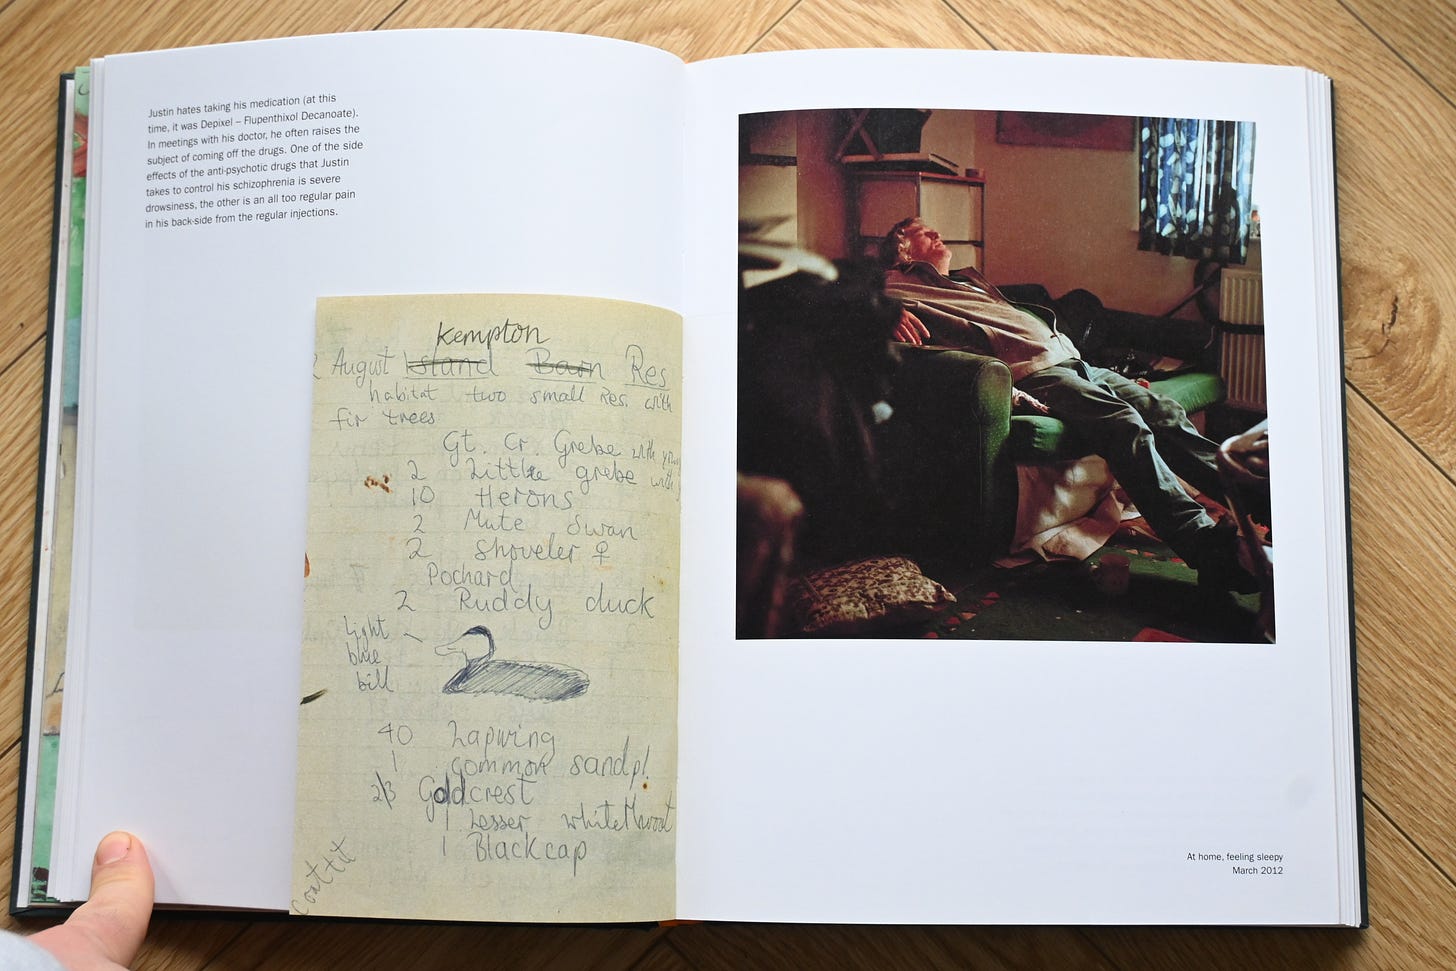 Justin hates taking his medication (at this
time, it was Depixel – Flupenthixol Decanoate).
In meetings with his doctor, he often raises the
subject of coming off the drugs. One of the side
effects of the anti-psychotic drugs that Justin
takes to control his schizophrenia is severe
drowsiness, the other is an all too regular pain
in his back-side from the regular injections.
Kempton
August Island Barn Res
habitat two small Res. with
fir trees
Gt. Cr. Grebe with
2 Little grebe with
10 Herons
2 Mute Swan
2 Shoveler ♀
Pochard
2 Ruddy duck
light
blue
bill
40 Lapwing
1 common sandp!
2/3 Goldcrest
1 Lesser whitethroat
1 Blackcap
coal tit
At home, feeling sleepy
March 2012